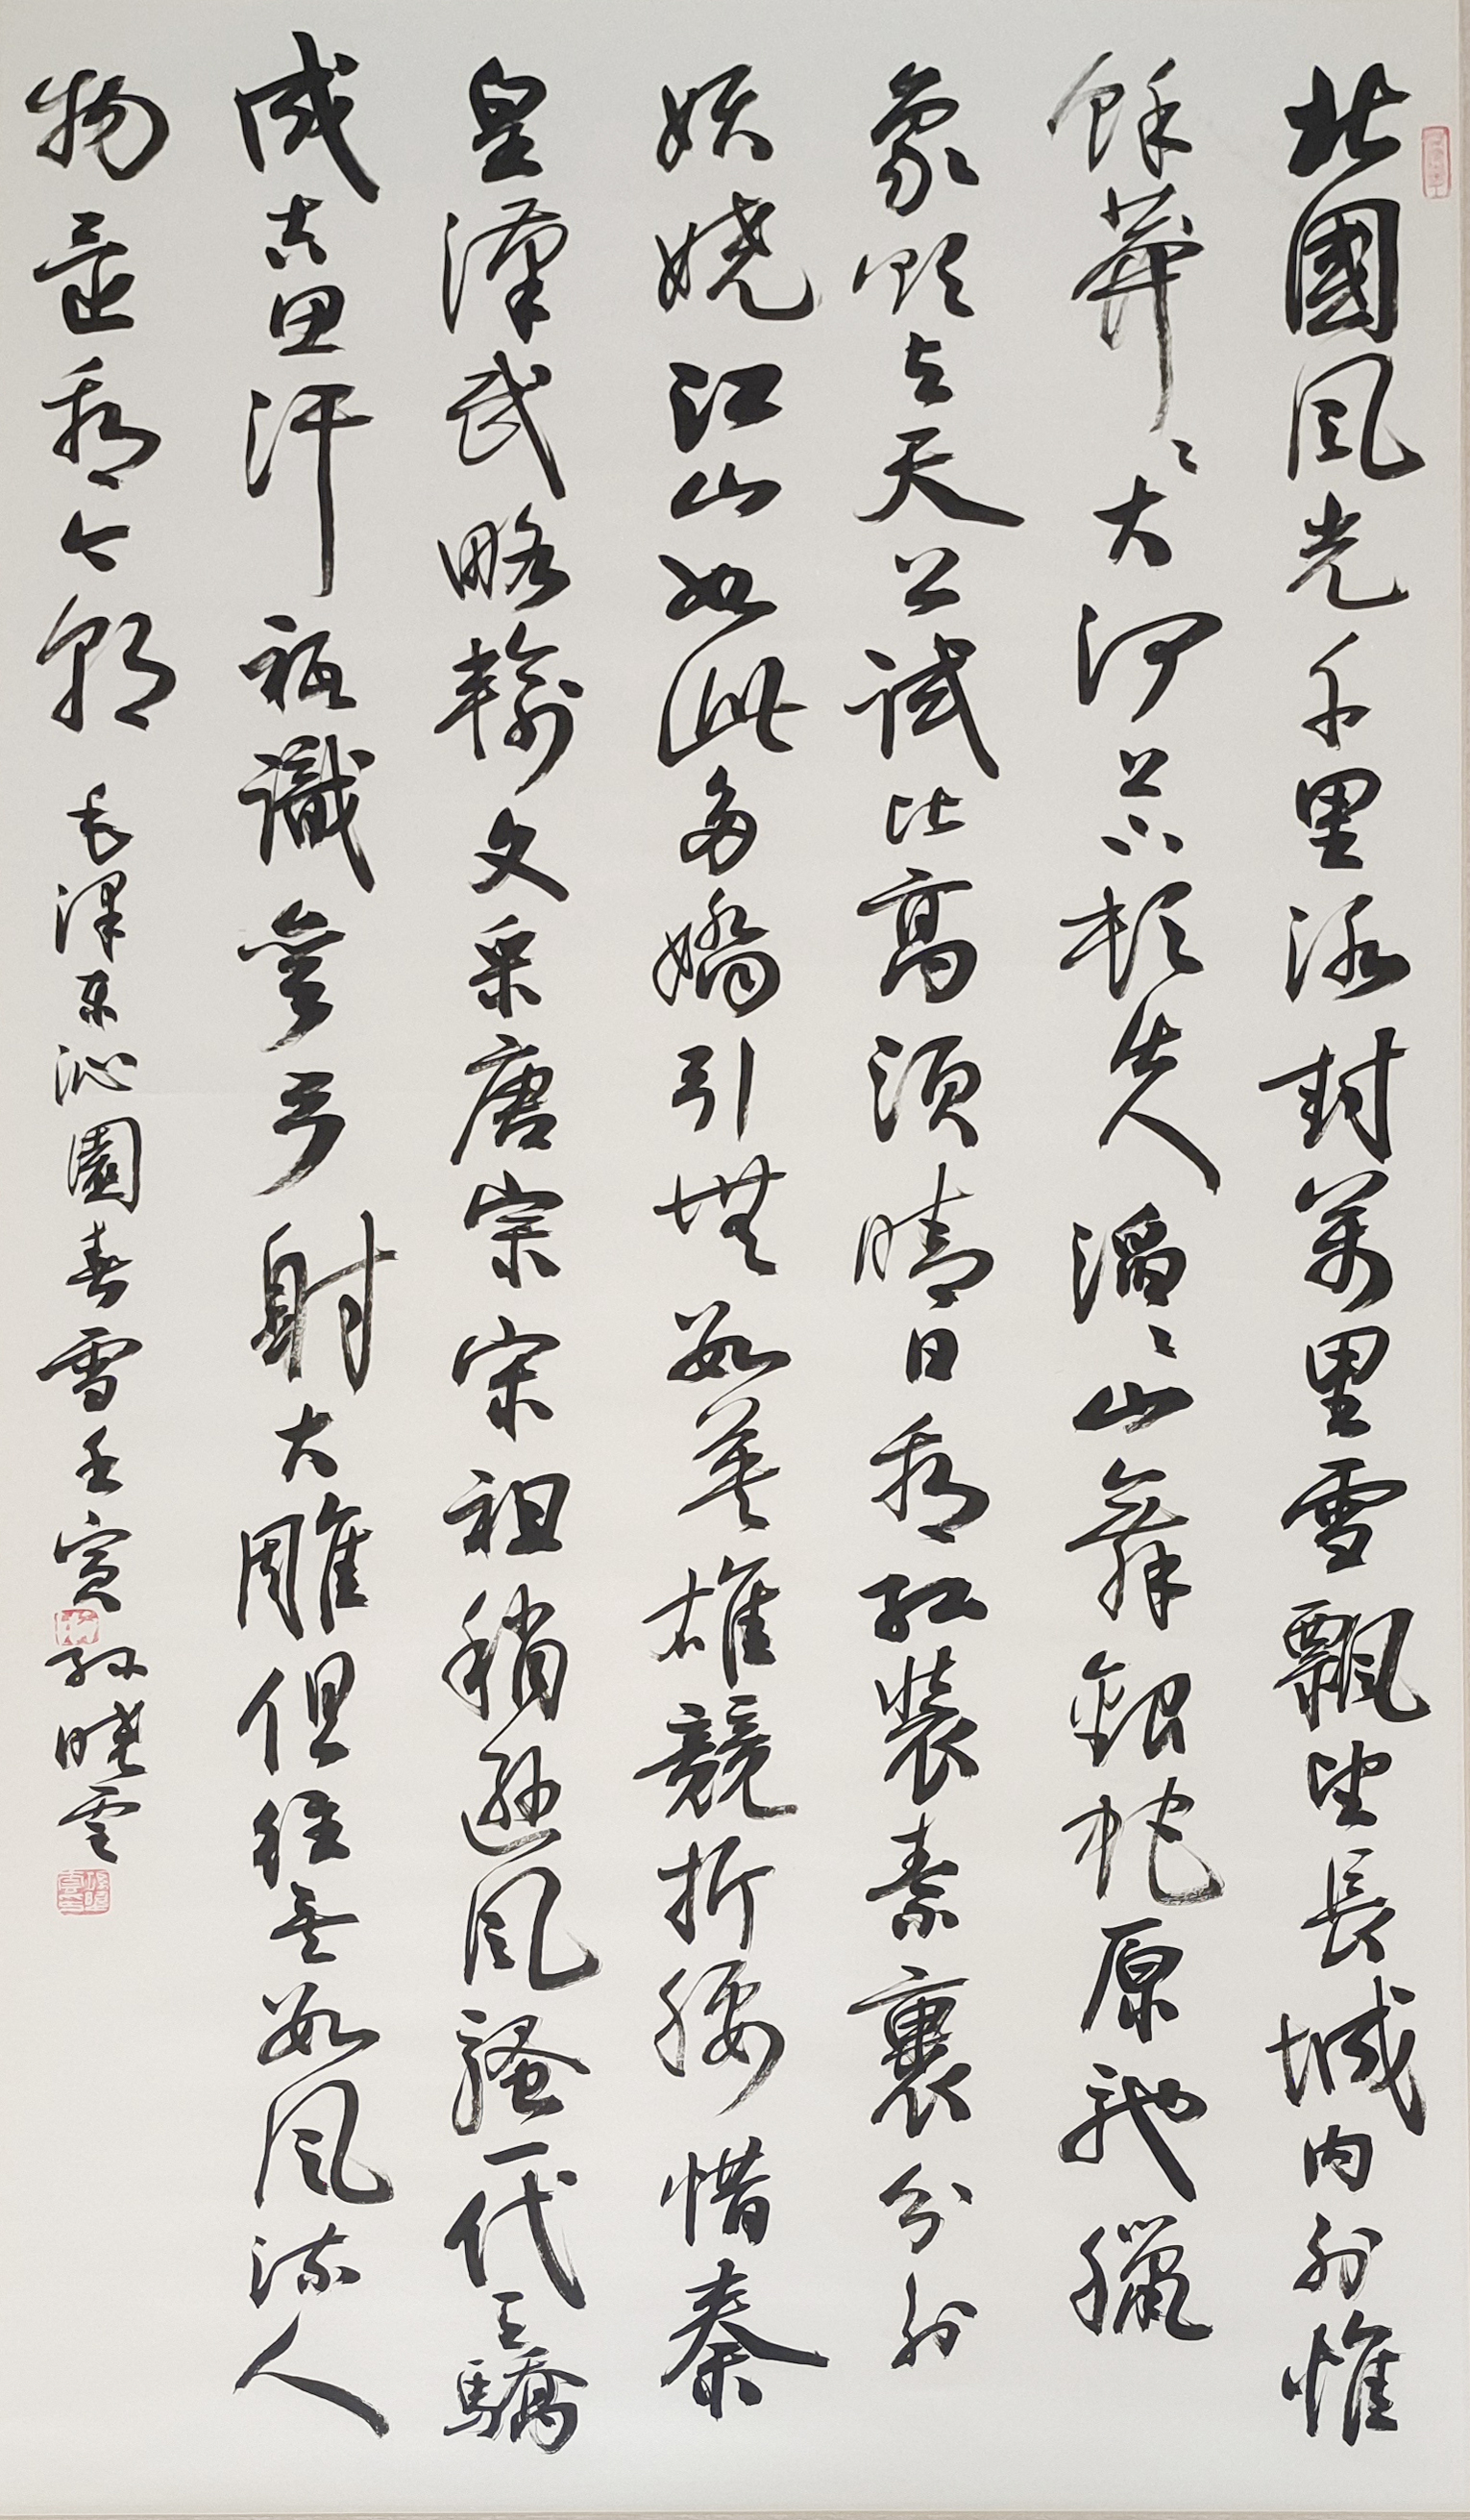 北國風光千里冰封萬里雪飄望長城内外惟
餘莽〻大河上下頓失滔〻山舞銀蛇原馳臘
象欲与天公試比高須晴日看紅裝素裹分外
妖嬈江山如此多嬌引無數英雄競折腰惜秦
皇漢武略輸文采唐宗宋祖稍遜風騷一代天驕
成吉思汗祇識彎弓射大雕俱往矣數風流人
物還看今朝 毛澤東沁園春雪壬寅孫曉雲